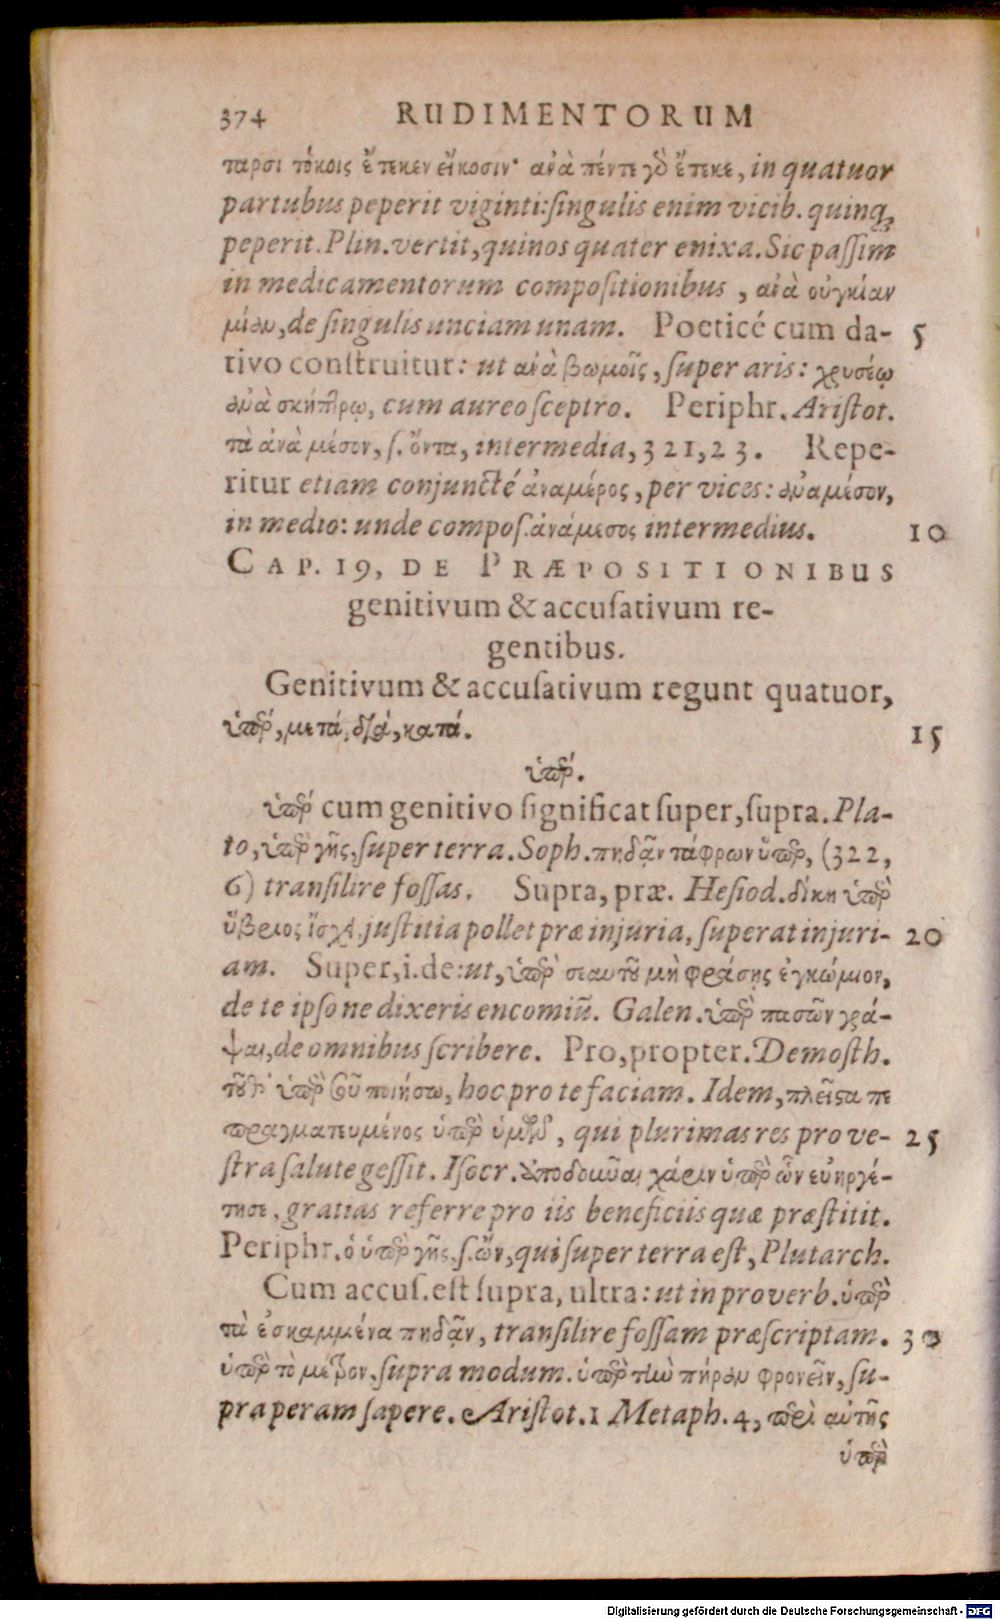 374 RUDIMENTORUM
ταρσι τόκοις ἔτεκεν εἴκοσιν· ἀνὰ πέντε γὸ ἔτεκε, in quatuor
partubus peperit viginti: ſingulis enim vicib. quinq;
peperit. Plin. vertit, quinos quater enixa. Sic paſſim
in medicamentorum compoſitionibus, ἀνὰ οὐγκίαν
μίαν, de ſingulis unciam unam. Poeticé cum da- 5
tivo conſtruitur: ut ἀνὰ βωμοῖς, ſuper aris: χρυσέῳ
ἀνὰ σκήπτρῳ, cum aureo ſceptro. Periphr. Ariſtot.
τὰ ἀνὰ μέσον, ſ. ὄντα, intermedia, 321, 23. Repe-
ritur etiam conjuncté ἀναμέρος, per vices: ἀναμέσον,
in medio: unde compoſ. ἀνάμεσος intermedius. 10
CAP. 19, DE PRÆPOSITIONIBUS
genitivum & accuſativum re-
gentibus.
Genitivum & accuſativum regunt quatuor,
ὑπὲρ, μετά, διά, κατά. 15
ὑπέρ.
ὑπέρ cum genitivo ſignificat ſuper, ſupra. Pla-
to, ὑπὲρ γῆς, ſuper terra. Soph. πηδᾷν τάφρων ὕπερ, (322,
6) tranſilire foſſas. Supra, præ. Heſiod. δίκη ὑπὲρ
ὕβριος ἴσχει, juſtitia pollet præ injuria, ſuperat injuri- 20
am. Super, i. de: ut, ὑπὲρ σεαυτοῦ μὴ φράσῃς ἐγκώμιον,
de te ipſo ne dixeris encomiū. Galen. ὑπὲρ πασῶν γρά-
ψαι, de omnibus ſcribere. Pro, propter. Demoſth.
τοῦθ' ὑπὲρ σοῦ ποιήσω, hoc pro te faciam. Idem, πλεῖστα πε
πραγματευμένος ὑπὲρ ὑμῶν, qui plurimas res pro ve- 25
ſtra ſalute geſſit. Iſocr. ἀποδοῦναι χάριν ὑπὲρ ὧν εὐηργέ-
τησε, gratias referre pro iis beneficiis quæ præſtitit.
Periphr. ὁ ὑπὲρ γῆς, ſ. ὤν, qui ſuper terra eſt, Plutarch.
Cum accuſ. eſt ſupra, ultra: ut in proverb. ὑπὲρ
τὰ ἐσκαμμένα πηδᾷν, tranſilire foſſam præſcriptam. 30
ὑπὲρ τὸ μέτρον, ſupra modum. ὑπὲρ τὴν πήραν φρονεῖν, ſu-
pra peram ſapere. Ariſtot. 1 Metaph. 4, περὶ αὐτῆς
ὑπὲρ
Digitalisierung gefördert durch die Deutsche Forschungsgemeinschaft - DFG